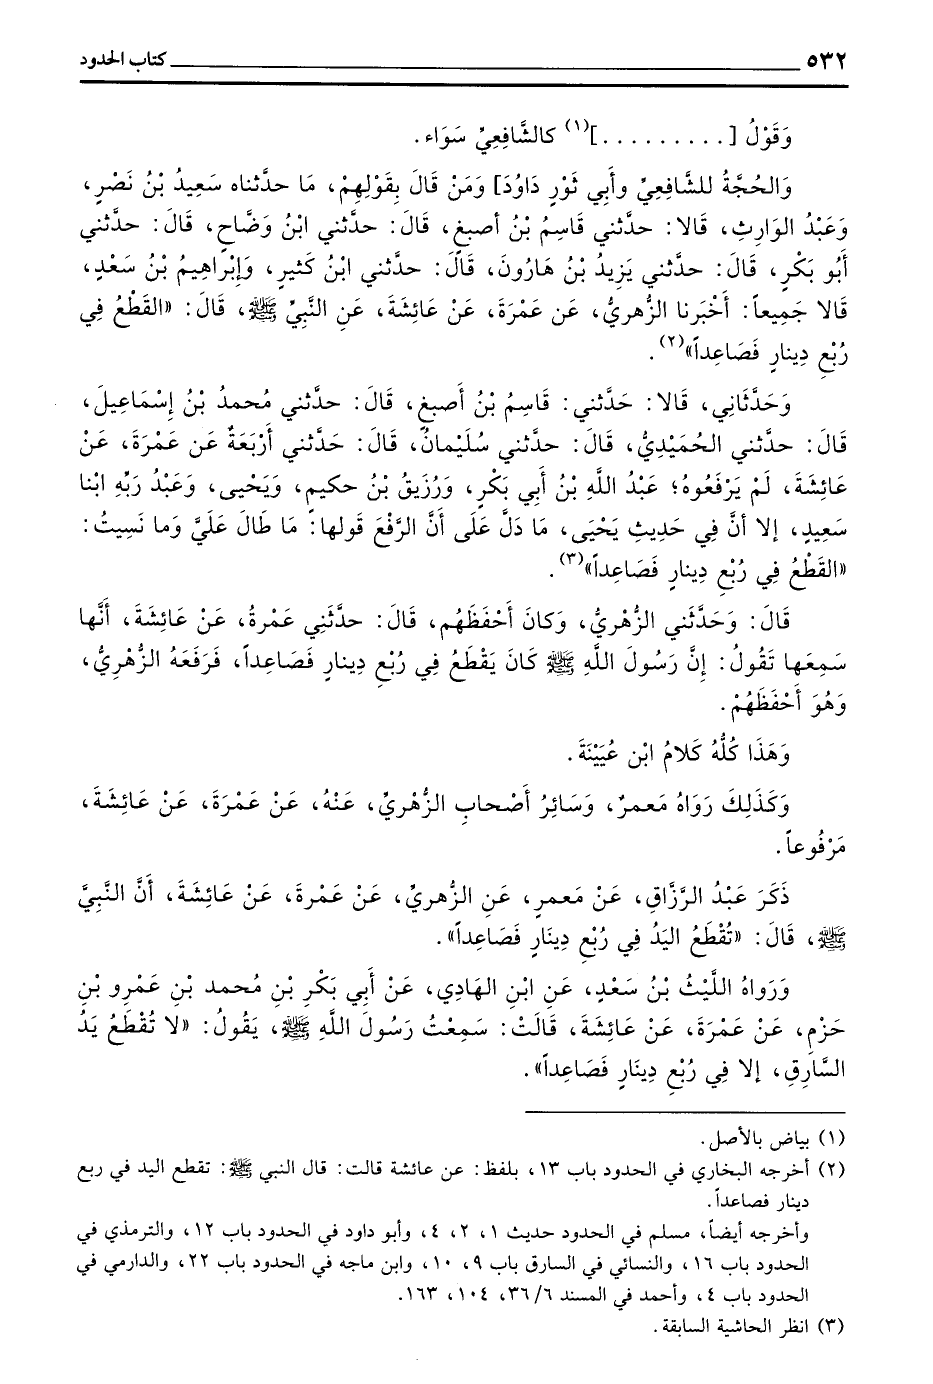 ٥٣٢ كتاب الحدود
وَقَوْلُ [. . . . . . . . .](١) كالشَّافِعِيِّ سَوَاء.
وَالحُجَّةُ للشَّافِعِيِّ وأَبِي ثَوْرٍ دَاوُدَ] وَمَنْ قَالَ بِقَوْلِهِمْ، مَا حدَّثناه سَعِيدُ بْنُ نَصْرٍ،
وَعَبْدُ الوَارِثِ، قَالا: حدَّثني قَاسِمُ بْنُ أصبغ، قَالَ: حدَّثني ابْنُ وَضَّاحٍ، قَالَ: حدَّثني
أَبُو بَكْرٍ، قَالَ: حدَّثني يَزِيدُ بْنُ هَارُونَ، قَالَ: حدَّثني ابْنُ كَثيرٍ، وَإِبْراهِيمُ بْنُ سَعْدٍ،
قَالا جَمِيعاً: أَخْبَرنا الزُّهريُّ، عَن عَمْرَةَ، عَنْ عَائِشَةَ، عَنِ النَّبِيِّ ﷺ، قَالَ: «القَطْعُ فِي
رُبْعِ دِينارٍ فَصَاعِداً»(٢).
وَحَدَّثَانِي، قَالا: حَدَّثني: قَاسِمُ بْنُ أَصبغٍ، قَالَ: حدَّثني مُحمدُ بْنُ إِسْمَاعِيلَ،
قَالَ: حدَّثني الحُمَيْدِيُّ، قَالَ: حدَّثني سُلَيْمانُ، قَالَ: حَدَّثني أَرْبَعَةٌ عَن عَمْرَةَ، عَنْ
عَائِشَةَ، لَمْ يَرْفَعُوهُ؛ عَبْدُ اللَّهِ بْنُ أَبِي بَكْرٍ، وَرُزَيقُ بْنُ حكيمٍ، وَيَحْيى، وَعَبْدُ رَبِّهِ ابْنا
سَعِيدٍ، إلا أنَّ فِي حَدِيثِ يَحْيَى، مَا دَلَّ عَلَى أَنَّ الرَّفْعَ قولها: مَا طَالَ عَلَيَّ وَما نَسِيتُ:
«القَطْعُ فِي رُبْعِ دِينارٍ فَصَاعِداً»(٣).
قَالَ: وَحَدَّثَني الزُّهْرِيُّ، وَكانَ أَحْفَظَهُم، قَالَ: حدَّثَنِي عَمْرةُ، عَنْ عَائِشَةَ، أَنَّها
سَمِعَها تَقُولُ: إِنَّ رَسُولَ اللَّهِ ﷺ كَانَ يَقْطَعُ فِي رُبْعِ دِينارٍ فَصَاعِداً، فَرَفَعَهُ الزُّهْرِيُّ،
وَهُوَ أَحْفَظَهُمْ.
وَهَذَا كُلُّهُ كَلامُ ابْن عُيَيْنَةَ.
وَكَذَلِكَ رَوَاهُ مَعمرٌ، وَسَائِرُ أَصْحابِ الزُّهْرِيِّ، عَنْهُ، عَنْ عَمْرَةَ، عَنْ عَائِشَةَ،
مَرْفُوعاً.
ذَكَرَ عَبْدُ الرَّزَّاقِ، عَنْ مَعمرٍ، عَنِ الزُّهريِّ، عَنْ عَمْرةَ، عَنْ عَائِشَةَ، أَنَّ النَّبِيَّ
ﷺ، قَالَ: «تُقْطَعُ اليَدُ فِي رُبْعِ دِينَارٍ فَصَاعِداً».
وَرَواهُ اللَّيْثُ بْنُ سَعْدٍ، عَنِ ابْنِ الهَادِي، عَنْ أَبِي بَكْرِ بْنِ مُحمد بْنِ عَمْرِو بْنِ
حَزْمٍ، عَنْ عَمْرَةَ، عَنْ عَائِشَةَ، قَالَتْ: سَمِعْتُ رَسُولَ اللَّهِ ﷺ، يَقُولُ: «لا تُقْطَعُ يَدُ
السَّارِقِ، إلا فِي رُبْعِ دِينَارٍ فَصَاعِداً».
(١) بياض بالأصل.
(٢) أخرجه البخاري في الحدود باب ١٣، بلفظ: عن عائشة قالت: قال النبي ﷺ: تقطع اليد في ربع
دينار فصاعداً.
وأخرجه أيضاً، مسلم في الحدود حديث ١، ٢، ٤، وأبو داود في الحدود باب ١٢، والترمذي في
الحدود باب ١٦، والنسائي في السارق باب ٩، ١٠، وابن ماجه في الحدود باب ٢٢، والدارمي في
الحدود باب ٤، وأحمد في المسند ٦/ ٣٦، ١٠٤، ١٦٣.
(٣) انظر الحاشية السابقة.